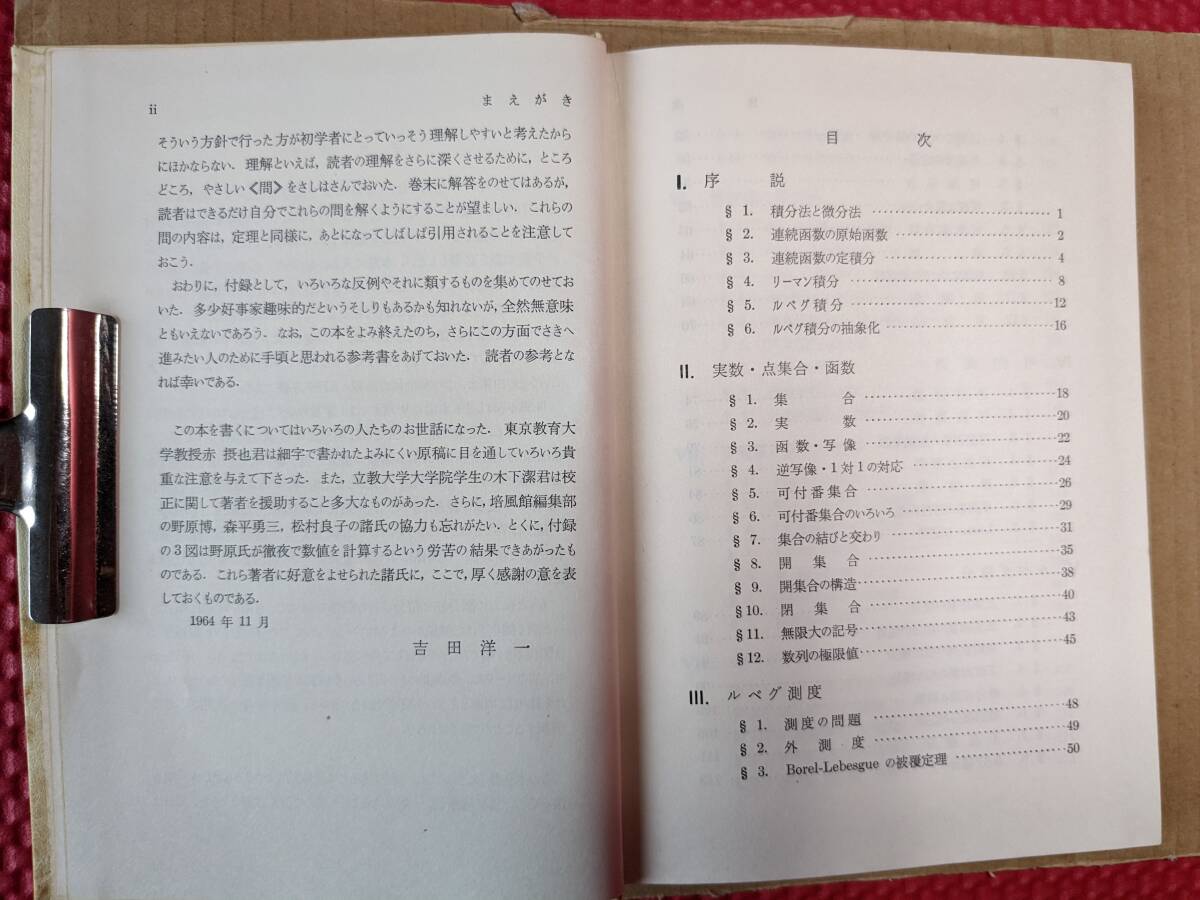 ii
まえがき
そういう方針で行った方が初学者にとっていっそう理解しやすいと考えたから
にほかならない．理解といえば，読者の理解をさらに深くさせるために，ところ
どころ，やさしい《問》をさしはさんでおいた．巻末に解答をのせてはあるが，
読者はできるだけ自分でこれらの問を解くようにすることが望ましい．これらの
問の内容は，定理と同様に，あとになってしばしば引用されることを注意して
おこう．
おわりに，付録として，いろいろな反例やそれに類するものを集めてのせてお
いた．多少好事家趣味的だというそしりもあるかも知れないが，全然無意味
ともいえないであろう．なお，この本をよみ終えたのち，さらにこの方面でさきへ
進みたい人のために手頃と思われる参考書をあげておいた．読者の参考とな
れば幸いである．
この本を書くについてはいろいろの人たちのお世話になった．東京教育大
学教授赤 摂也君は細字で書かれたよみにくい原稿に目を通していろいろ貴
重な注意を与えて下さった．また，立教大学大学院学生の木下潔君は校
正に関して著者を援助すること多大なものがあった．さらに，培風館編集部
の野原博，森平勇三，松村良子の諸氏の協力も忘れがたい．とくに，付録
の3図は野原氏が徹夜で数値を計算するという労苦の結果できあがったも
のである．これら著者に好意をよせられた諸氏に，ここで，厚く感謝の意を表
しておくものである．
1964 年 11 月
吉田洋一
目次
I. 序説
§ 1. 積分法と微分法 1
§ 2. 連続函数の原始函数 2
§ 3. 連続函数の定積分 4
§ 4. リーマン積分 8
§ 5. ルベグ積分 12
§ 6. ルベグ積分の抽象化 16
II. 実数・点集合・函数
§ 1. 集合 18
§ 2. 実数 20
§ 3. 函数・写像 22
§ 4. 逆写像・1対1の対応 24
§ 5. 可付番集合 26
§ 6. 可付番集合のいろいろ 29
§ 7. 集合の結びと交わり 31
§ 8. 開集合 35
§ 9. 開集合の構造 38
§10. 閉集合 40
§11. 無限大の記号 43
§12. 数列の極限値 45
III. ルベグ測度
§ 1. 測度の問題 48
§ 2. 外測度 49
§ 3. Borel-Lebesgue の被覆定理 50